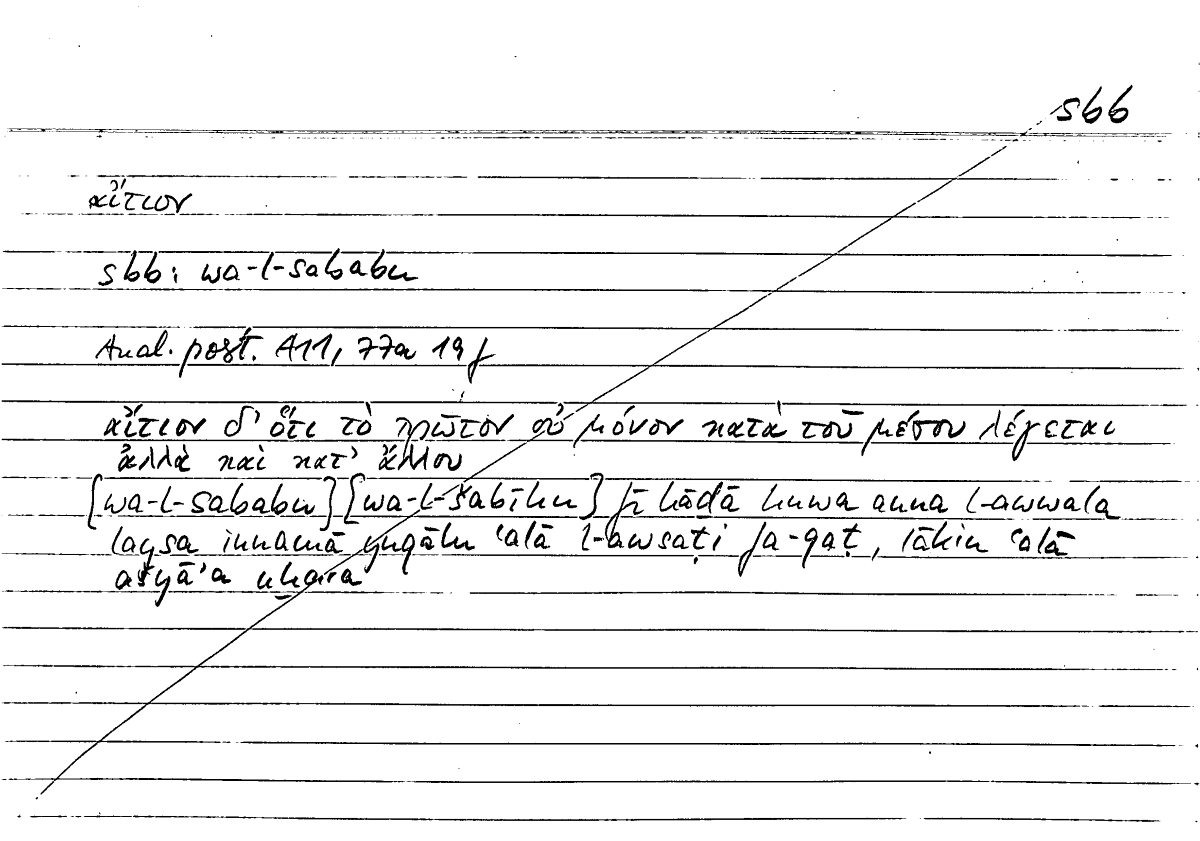 sbb
αἴτιον
sbb: wa-l-sababu
Anal. post. A11, 77a 19f
αἴτιον δ' ὅτι τὸ πρῶτον οὐ μόνον κατὰ τοῦ μέσου λέγεται
ἀλλὰ καὶ κατ' ἄλλου
[wa-l-sababu] [wa-l-šabīhu] fī hāḏā huwa anna l-awwala
laysa innamā yuqālu ʿalā l-awsaṭi fa-qaṭ, lākin ʿalā
ašyāʾa uḫara